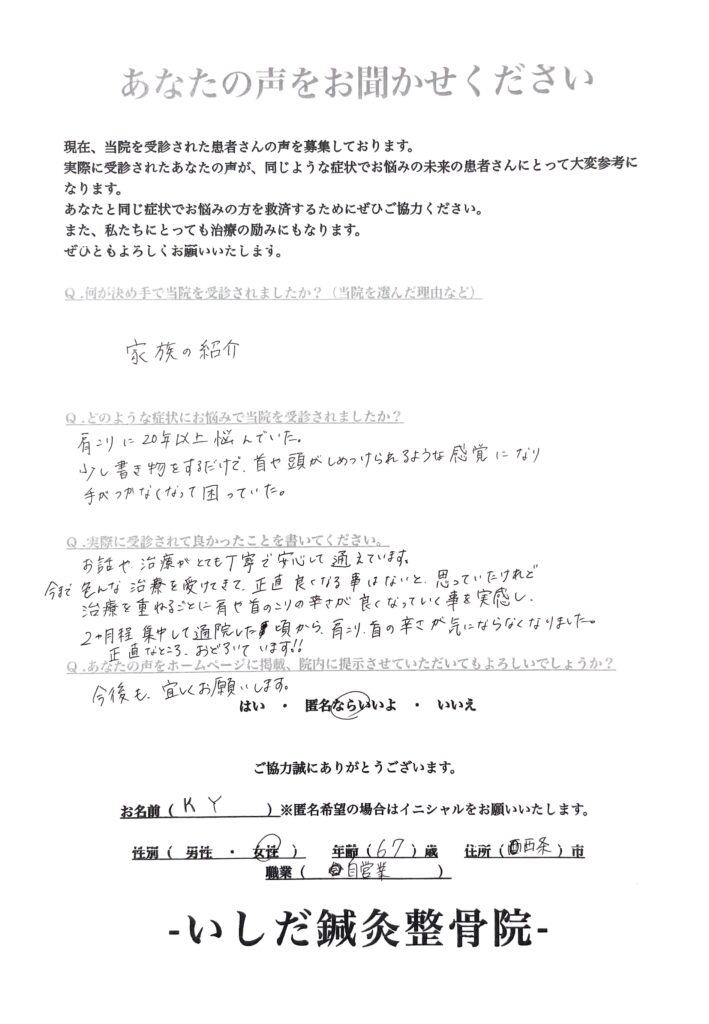 あなたの声をお聞かせください
現在、当院を受診された患者さんの声を募集しております。
実際に受診されたあなたの声が、同じような症状でお悩みの未来の患者さんにとって大変参考に
なります。
あなたと同じ症状でお悩みの方を救済するためにぜひご協力ください。
また、私たちにとっても治療の励みにもなります。
ぜひともよろしくお願いいたします。
Q.何が決め手で当院を受診されましたか？（当院を選んだ理由など）
家族の紹介
Q.どのような症状にお悩みで当院を受診されましたか？
肩こりに20年以上悩んでいた。
少し書き物をするだけで、首や頭がしめつけられるような感覚になり
手がつかなくなって困っていた。
Q.実際に受診されて良かったことを書いてください。
お話や治療がとても丁寧で安心して通えています。
今まで色んな治療を受けてきて、正直良くなる事はないと、思っていたけれど
治療を重ねるごとに肩や首のこりの辛さが良くなっていく事を実感し、
2ヶ月程集中して通院した頃から、肩こり、首の辛さが気にならなくなりました。
正直なところ、おどろいています!!
Q.あなたの声をホームページに掲載、院内に提示させていただいてもよろしいでしょうか？
今後も、宜しくお願いします。
はい ・ 匿名ならいいよ ・ いいえ
ご協力誠にありがとうございます。
お名前（ K Y ）※匿名希望の場合はイニシャルをお願いいたします。
性別（ 男性 ・ 女性 ） 年齢（67）歳 住所（西条）市
職業（ 自営業 ）
-いしだ鍼灸整骨院-